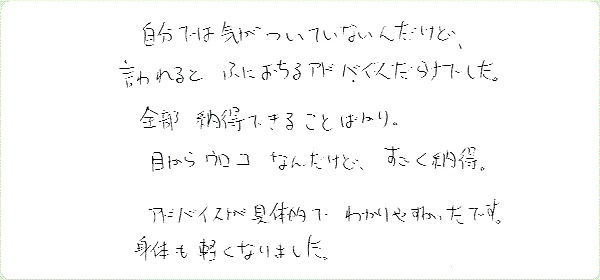 自分では気がついていないんだけど、
言われると ふにおちるアドバイスだらけでした。
全部 納得できることばかり。
目からウロコ なんだけど、すごく納得。
アドバイスが具体的で わかりやすかったです。
身体も軽くなりました。